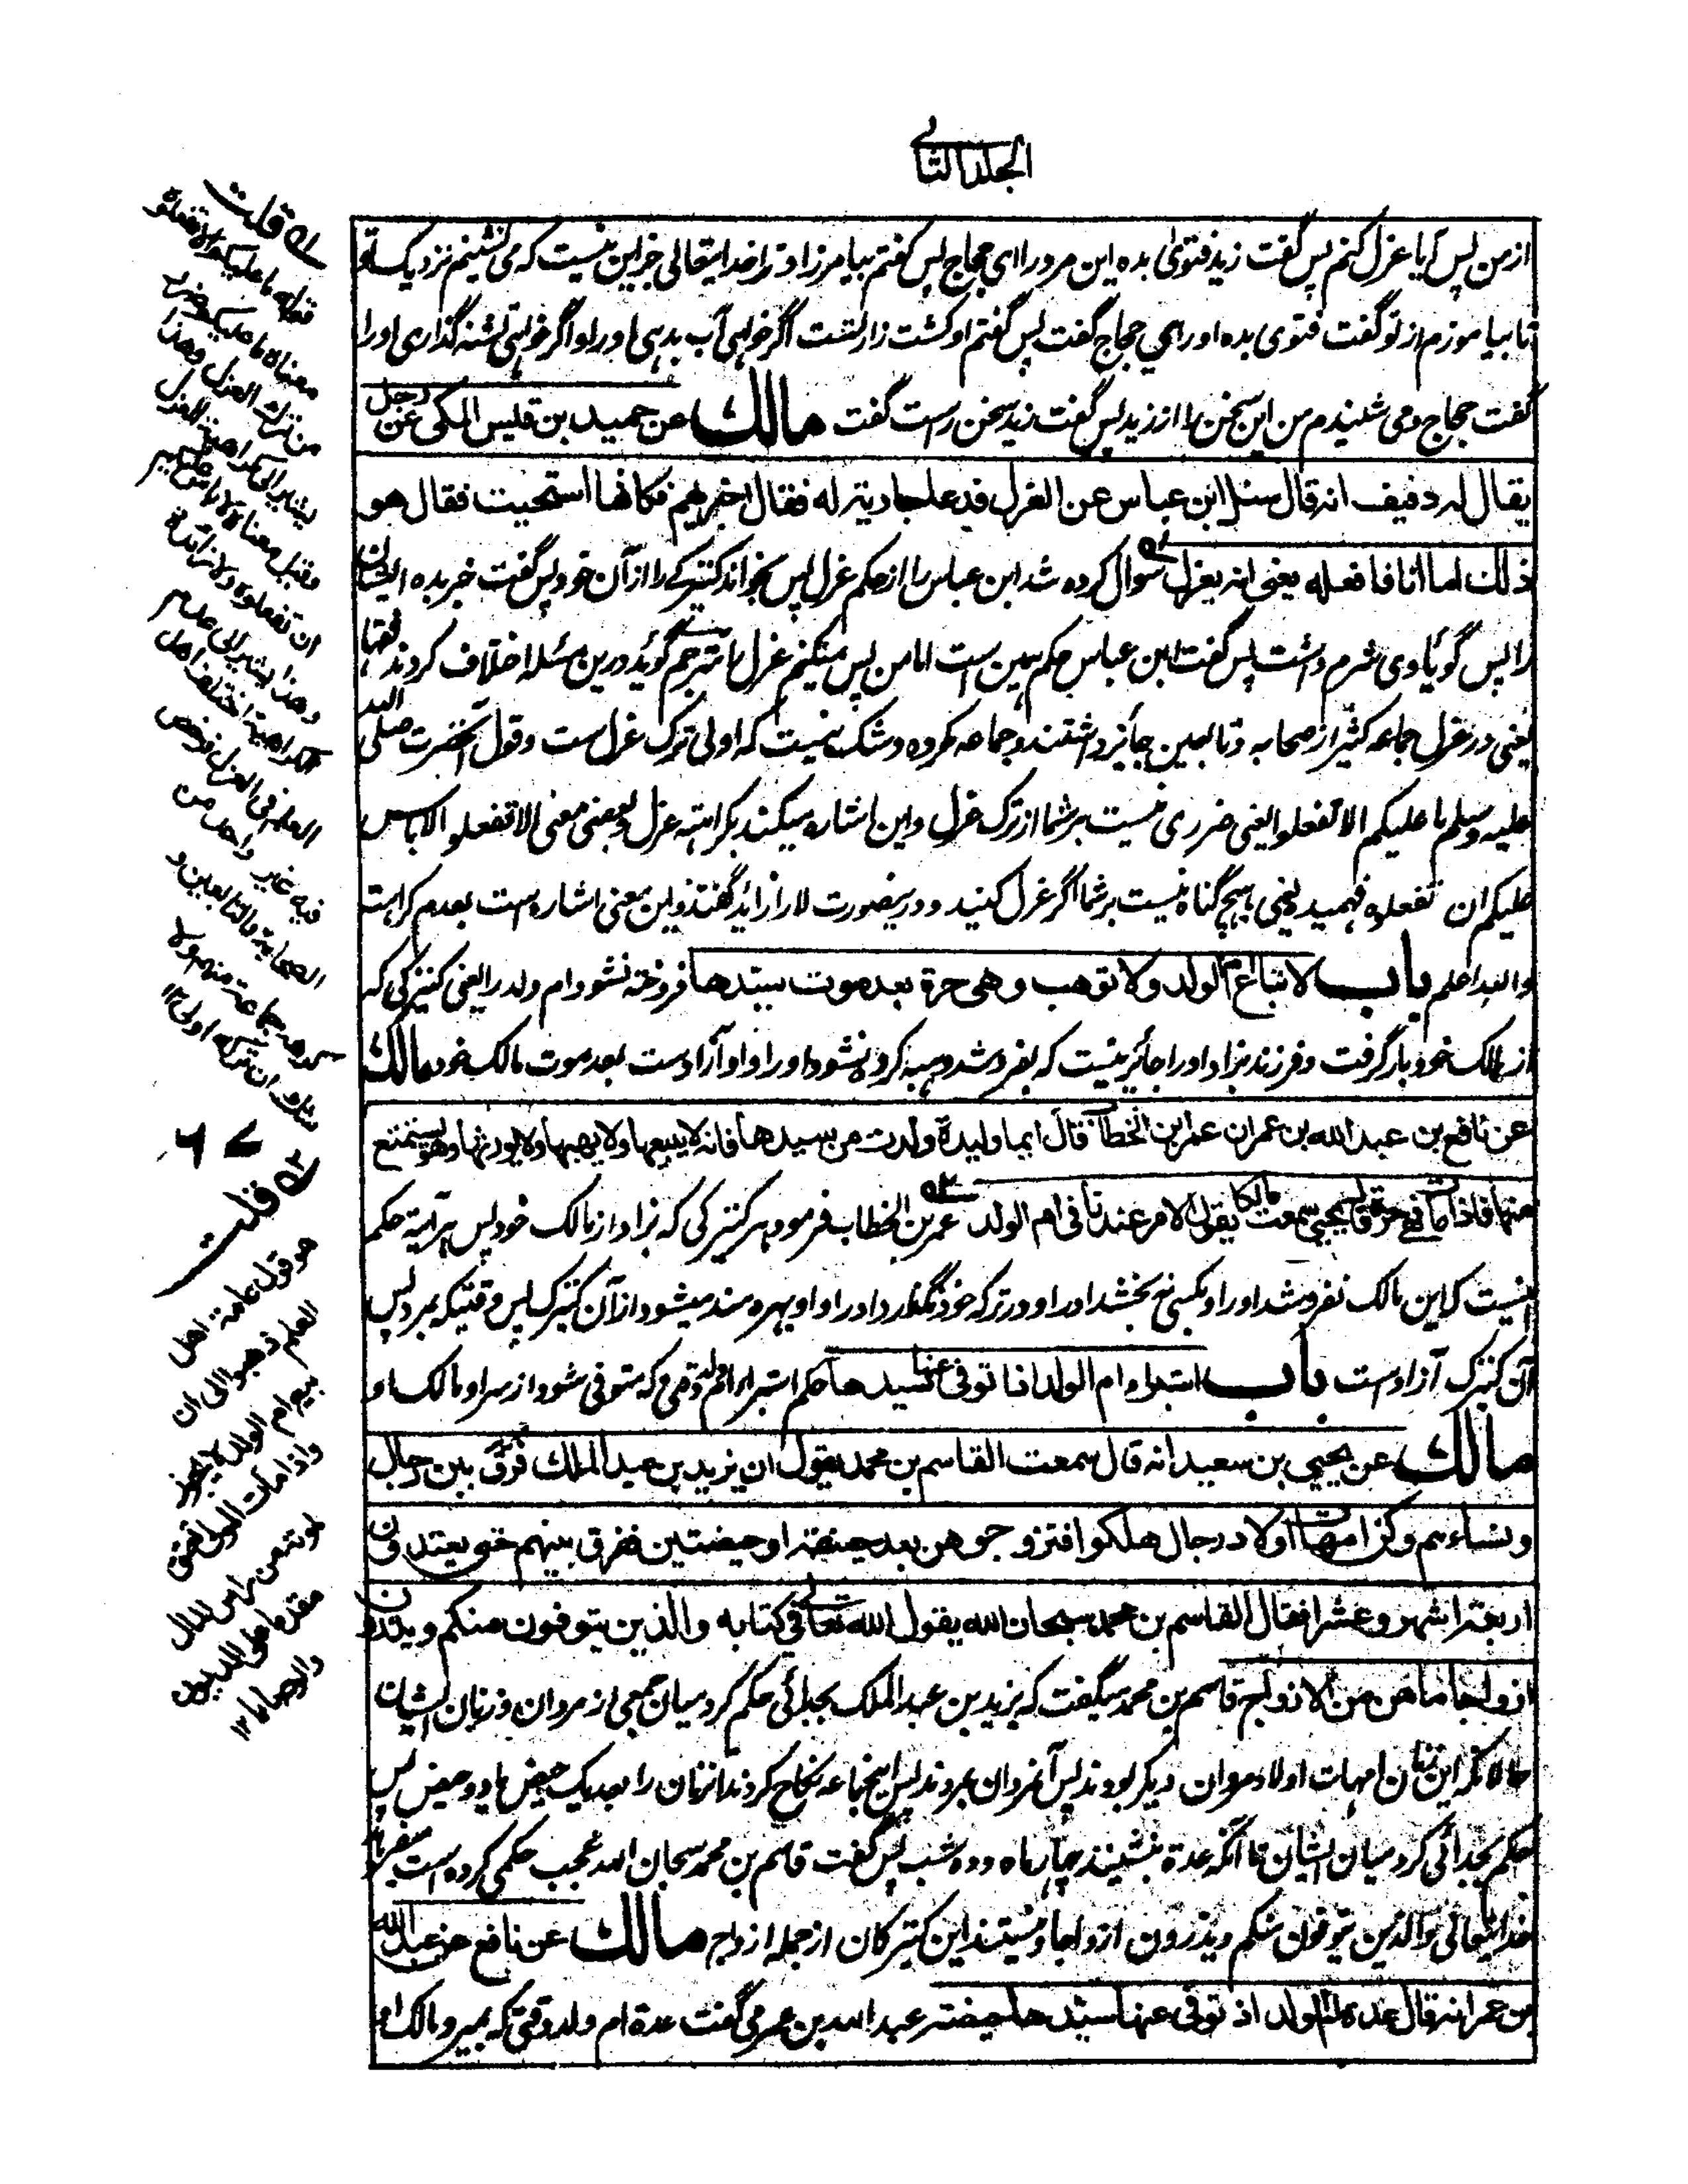 الجلد الثاني
از من پس آیا عزل کنم پس گفت زید فتوی بده این مرد را ای حجاج پس گفتم بیامرزاد ترا خدایتعالی جز این نیست که می نشینم نزدیک تو
تا بیاموزم از تو گفت فتوی بده او را ای حجاج گفت پس گفتم او کشت زار تست اگر خواهی آب بدهی او را و اگر خواهی تشنه گذاری او را
گفت حجاج و می شنیدم من این سخن را از زید پس گفت زید سخن راست گفت مالك عن حميد بن قيس المكي عن رجل
يقال له ذفيف انه قال سئل ابن عباس عن العزل فدعا جارية له فقال اخبريهم فكانها استحيت فقال هو
ذلك اما انا فافعله يعني انه يعزل سوال کرده شد ابن عباس را از حکم عزل پس بخواند کنیزکے را از آن خود پس گفت خبر بده ایشان
را پس گویا وی شرم داشت پس گفت ابن عباس حکم همین است اما من پس میکنم عزل را مترجم گوید درین مسئله اختلاف کردند فقها
یعنی در عزل جماعه کثیر از صحابه و تابعین جائز داشتند و جماعه مکروه و شک نیست که اولی ترک عزل ست و قول آنحضرت صلی الله
علیه وسلم ما علیکم الا تفعلوا یعنی ضرری نیست بر شما از ترک عزل و این اشاره میکند بکراهیته عزل و بعضی معنی الا تفعلوا لا باس
علیکم ان تفعلوه فهمید یعنی هیچ گناه نیست بر شما اگر عزل کنید و درینصورت لا را زائد گفتند و این معنی اشاره ست بعدم کراهت
والله اعلم باب لا تباع ام الولد ولا توهب وهي حرة بعد موت سيدها فروخته نشود ام ولد را یعنی کنیزکی که
از مالک خود بار گرفت و فرزند بزاد او را جائز نیست که بفروشند و هبه کرده نشود او را و او آزادست بعد موت مالک خود مالك
عن نافع بن عبد الله بن عمر ان عمر بن الخطاب قال ايما وليدة ولدت من سيدها فانه لا يبيعها ولا يهبها ولا يورثها وهو يستمتع
منها فاذا مات فهي حرة قال يحيى سمعت مالكا يقول الامر عندنا في ام الولد عمر بن الخطاب فرمود هر کنیزکی که بزاد از مالک خود پس هر آئینه حکم
اینست که این مالک نفروشد او را و بکسی نه بخشد او را و در ترکه خود نگذارد او را و او بهره مند میشود از آن کنیزک پس وقتیکه بمرد پس
آن کنیزک آزادست باب استبراء ام الولد اذا توفي عنها سيدها حکم استبراء ام ولد وقتی که متوفی شود از سر او مالک او
مالك عن يحيى بن سعيد انه قال سمعت القاسم بن محمد يقول ان يزيد بن عبد الملك فرق بين رجال
ونساءهم وكن امهات اولاد رجال هلكوا فتزوجوهن بعد حيضة او حيضتين ففرق بينهم حتى يعتددن
اربعة اشهر وعشرا فقال القاسم بن محمد سبحان الله يقول الله تعالى في كتابه والذين يتوفون منكم ويذرون
ازواجا ما هن من الازواج قاسم بن محمد میگفت که یزید بن عبد الملک بجدائی حکم کرد میان جمعی از مردان و زنان ایشان
حالانکه این زنان امهات اولاد مردان دیگر بودند پس آنمردان بمردند پس اینجماعه نکاح کردند آنزنان را بعد یک حیض یا دو حیض پس
حکم بجدائی کرد میان ایشان تا آنکه عدة بنشینند چهار ماه و ده شب پس گفت قاسم بن محمد سبحان الله عجب حکمی کرده است میفرماید
خدایتعالی والذین یتوفون منکم ویذرون ازواجا و نیستند این کنیزکان از جمله ازواج مالك عن نافع عن عبد الله
بن عمر انه قال عدة ام الولد اذا توفي عنها سيدها حيضة عبد الله بن عمر می گفت عدة ام ولد وقتی که بمیرد مالک او
له قلت
قوله ما عليكم الا تفعلوه
معناه ما عليكم ضرر
من ترك العزل وهذا
يشير الى كراهية العزل
وقيل معناه لا باس عليكم
ان تفعلوه ولا زائدة
وهذا يشير الى عدم
الكراهية اختلف اهل
العلم في العزل فرخص
فيه غير واحد من
الصحابة والتابعين و
كرهه جماعة منهم ولا
شك ان تركه اولى ١٢
له قلت
هو قول عامة اهل
العلم ذهبوا الى ان
بيع ام الولد لا يجوز
واذا مات المولى تعتق
موته من راس المال
مقدما على الديون
والوصايا ١٢